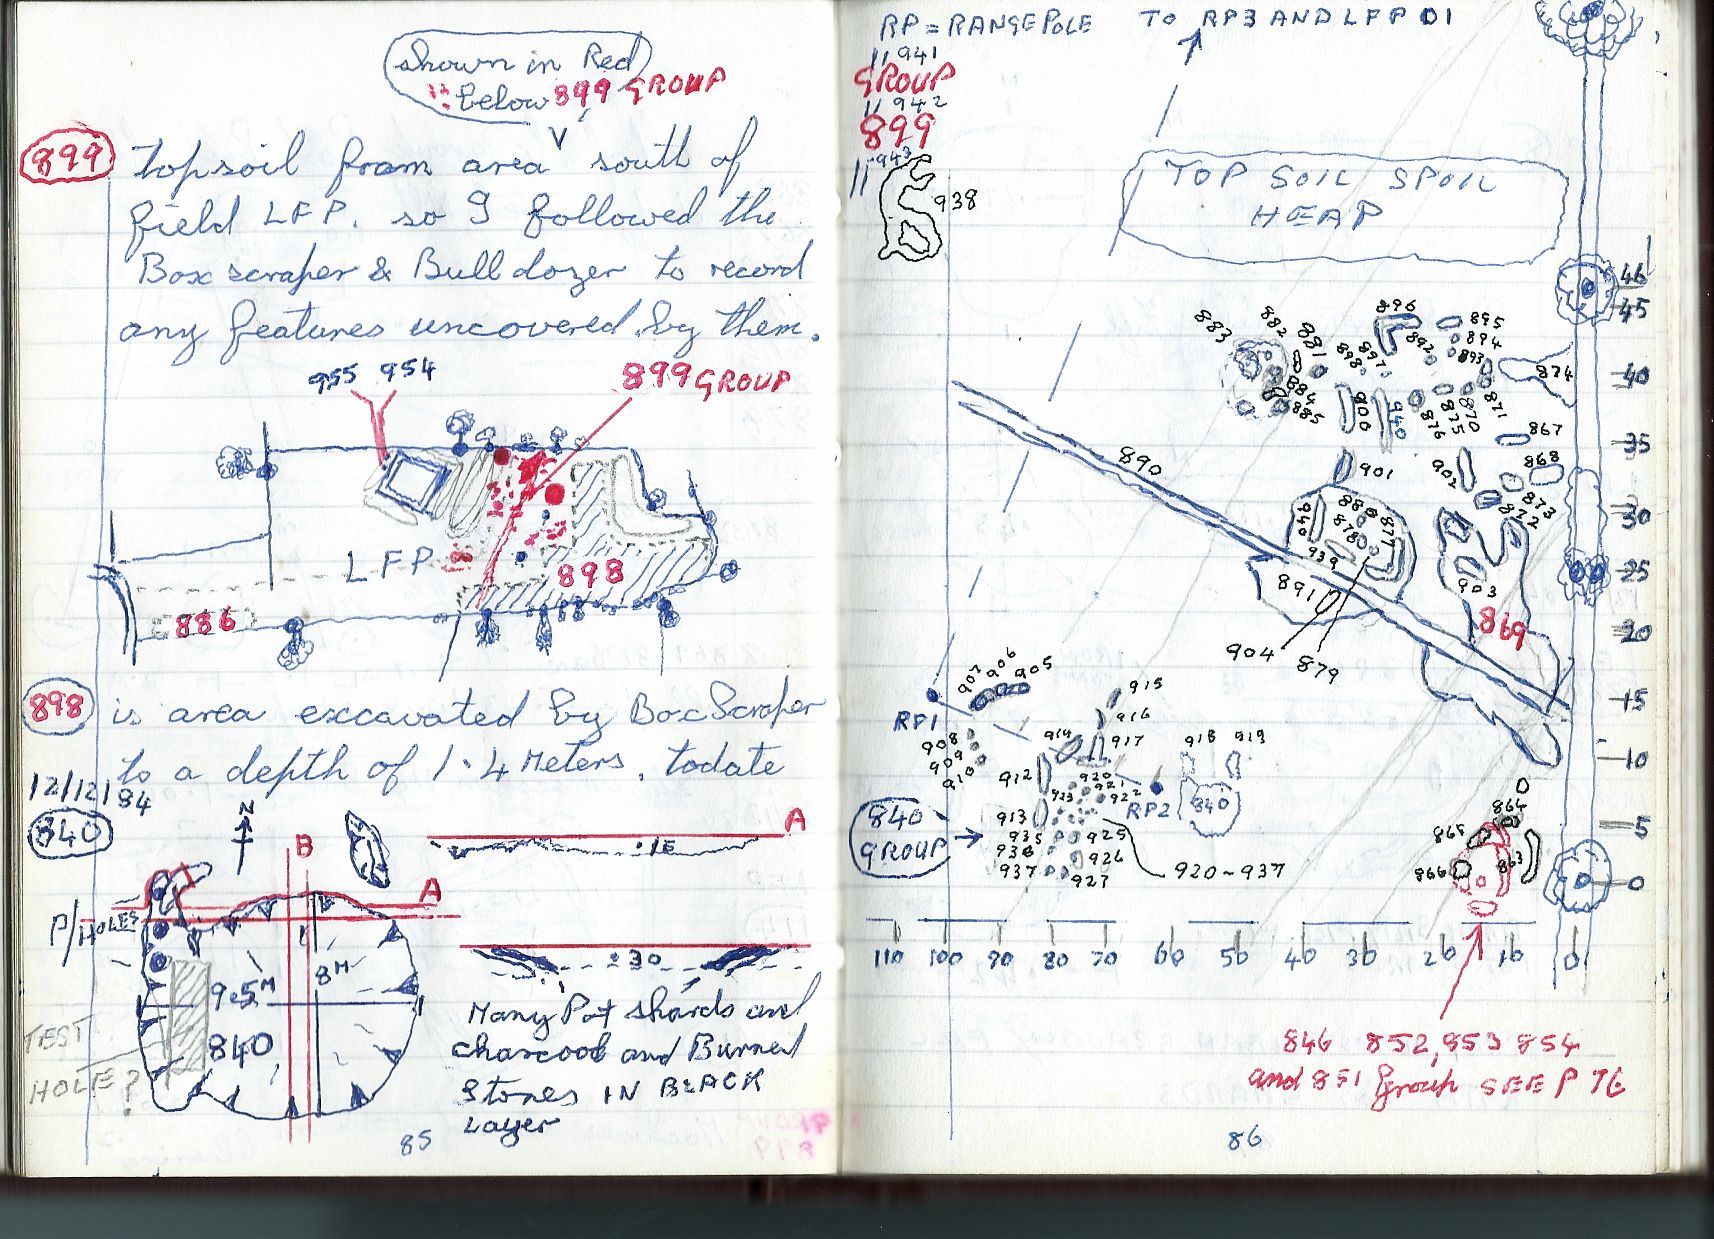 Shown in Red
below 899 GROUP
899 Topsoil from area south of
field LFP. so I followed the
Box scraper & Bull dozer to record
any features uncovered by them.
955 954
899 GROUP
LFP
898
886
898 is area excavated by Box Scraper
to a depth of 1.4 Meters. todate
12/12/84
840
N
B
A
.15
A
P/HOLES
9.5M
8M
840
TEST
HOLE?
.30
Many Pot shards and
charcoal and Burned
Stones IN BLACK
Layer
85
RP = RANGE POLE TO RP3 AND LFP 01
11 941
GROUP
11 942
899
11 943
938
TOP SOIL SPOIL
HEAP
46
45
40
35
30
25
20
15
10
5
0
883 882 881 896 895
894
898 897 892 893
874
884
885
900 940 876 875 870 871
867
890
901 902 868
873
872
940 880 877
878
939
903
891
869
904 879
907 906 905
915
RP1
916
908 914 917 918 919
909
910
912 920
921
923 922
RP2
840
913
840
GROUP
935 925
936 926
937 927
920-937
864
865
866 863
110 100 90 80 70 60 50 40 30 20 10 0
846 852, 853 854
and 851 group SEE P 76
86